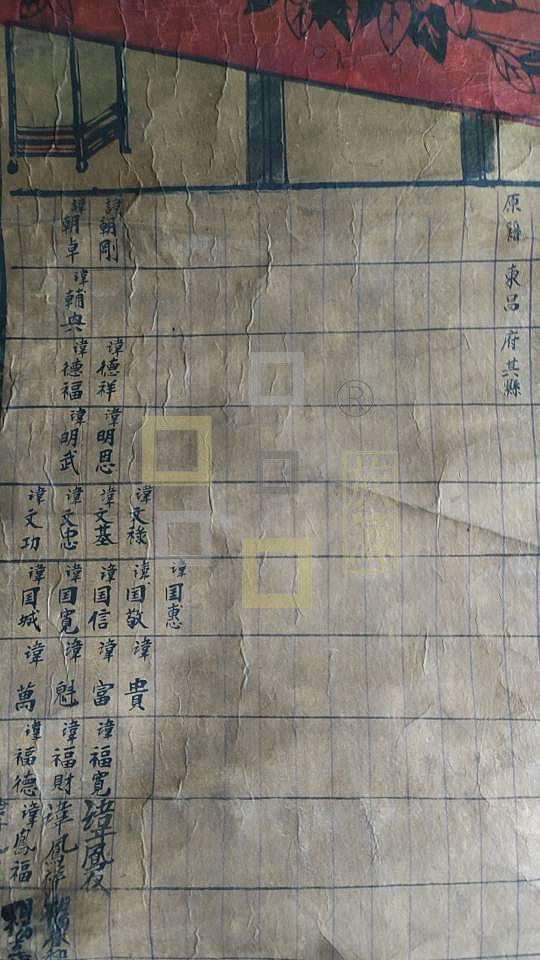 原籍 東昌府其縣
諱朝剛
諱朝卓
諱輔興
諱德祥
諱德福
諱明恩
諱明武
諱文祿
諱文基
諱文忠
諱文功
諱国惠
諱国敬
諱国信
諱国寬
諱国城
諱貴
諱富
諱魁
諱萬
諱福寬
諱福財
諱福德
諱鳳
諱鳳祥
諱鳳福
®
族迹